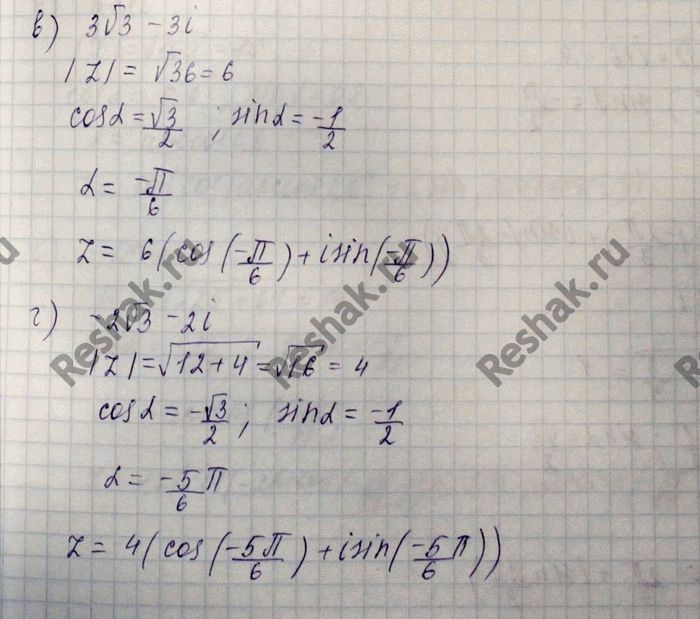 в) 3√3 - 3i
|z| = √36 = 6
cosα = √3/2 ; sinα = -1/2
α = -π/6
z = 6(cos(-π/6) + isin(-π/6))
г) -2√3 - 2i
|z| = √12+4 = √16 = 4
cosα = -√3/2 ; sinα = -1/2
α = -5/6 π
z = 4(cos(-5π/6) + isin(-5/6 π))
Reshak.ru
Reshak.ru
Reshak.ru